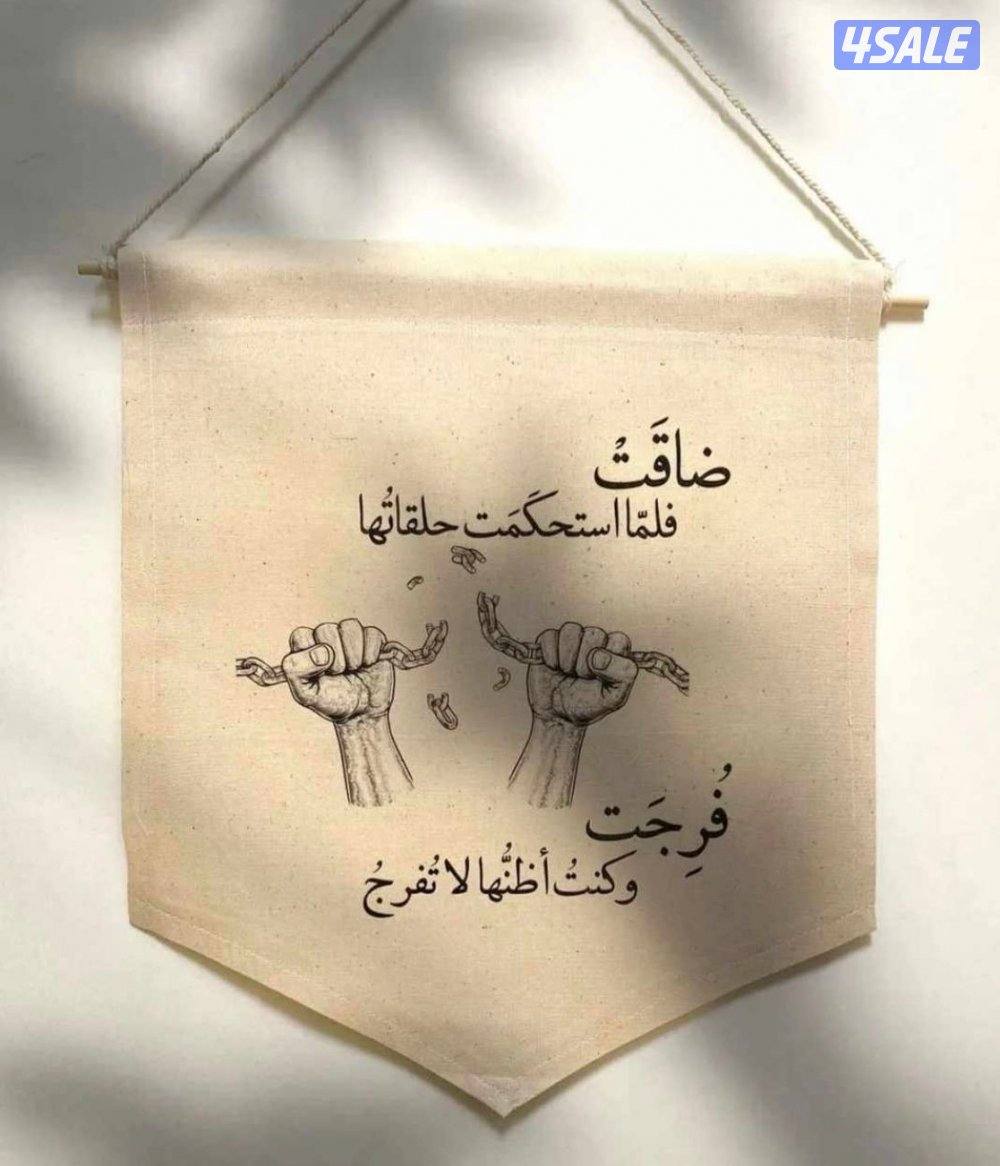 4SALE
ضاقَتْ
فلمّا استحكَمَت حلقاتُها
فُرِجَت
وكنتُ أظنُّها لا تُفرجُ